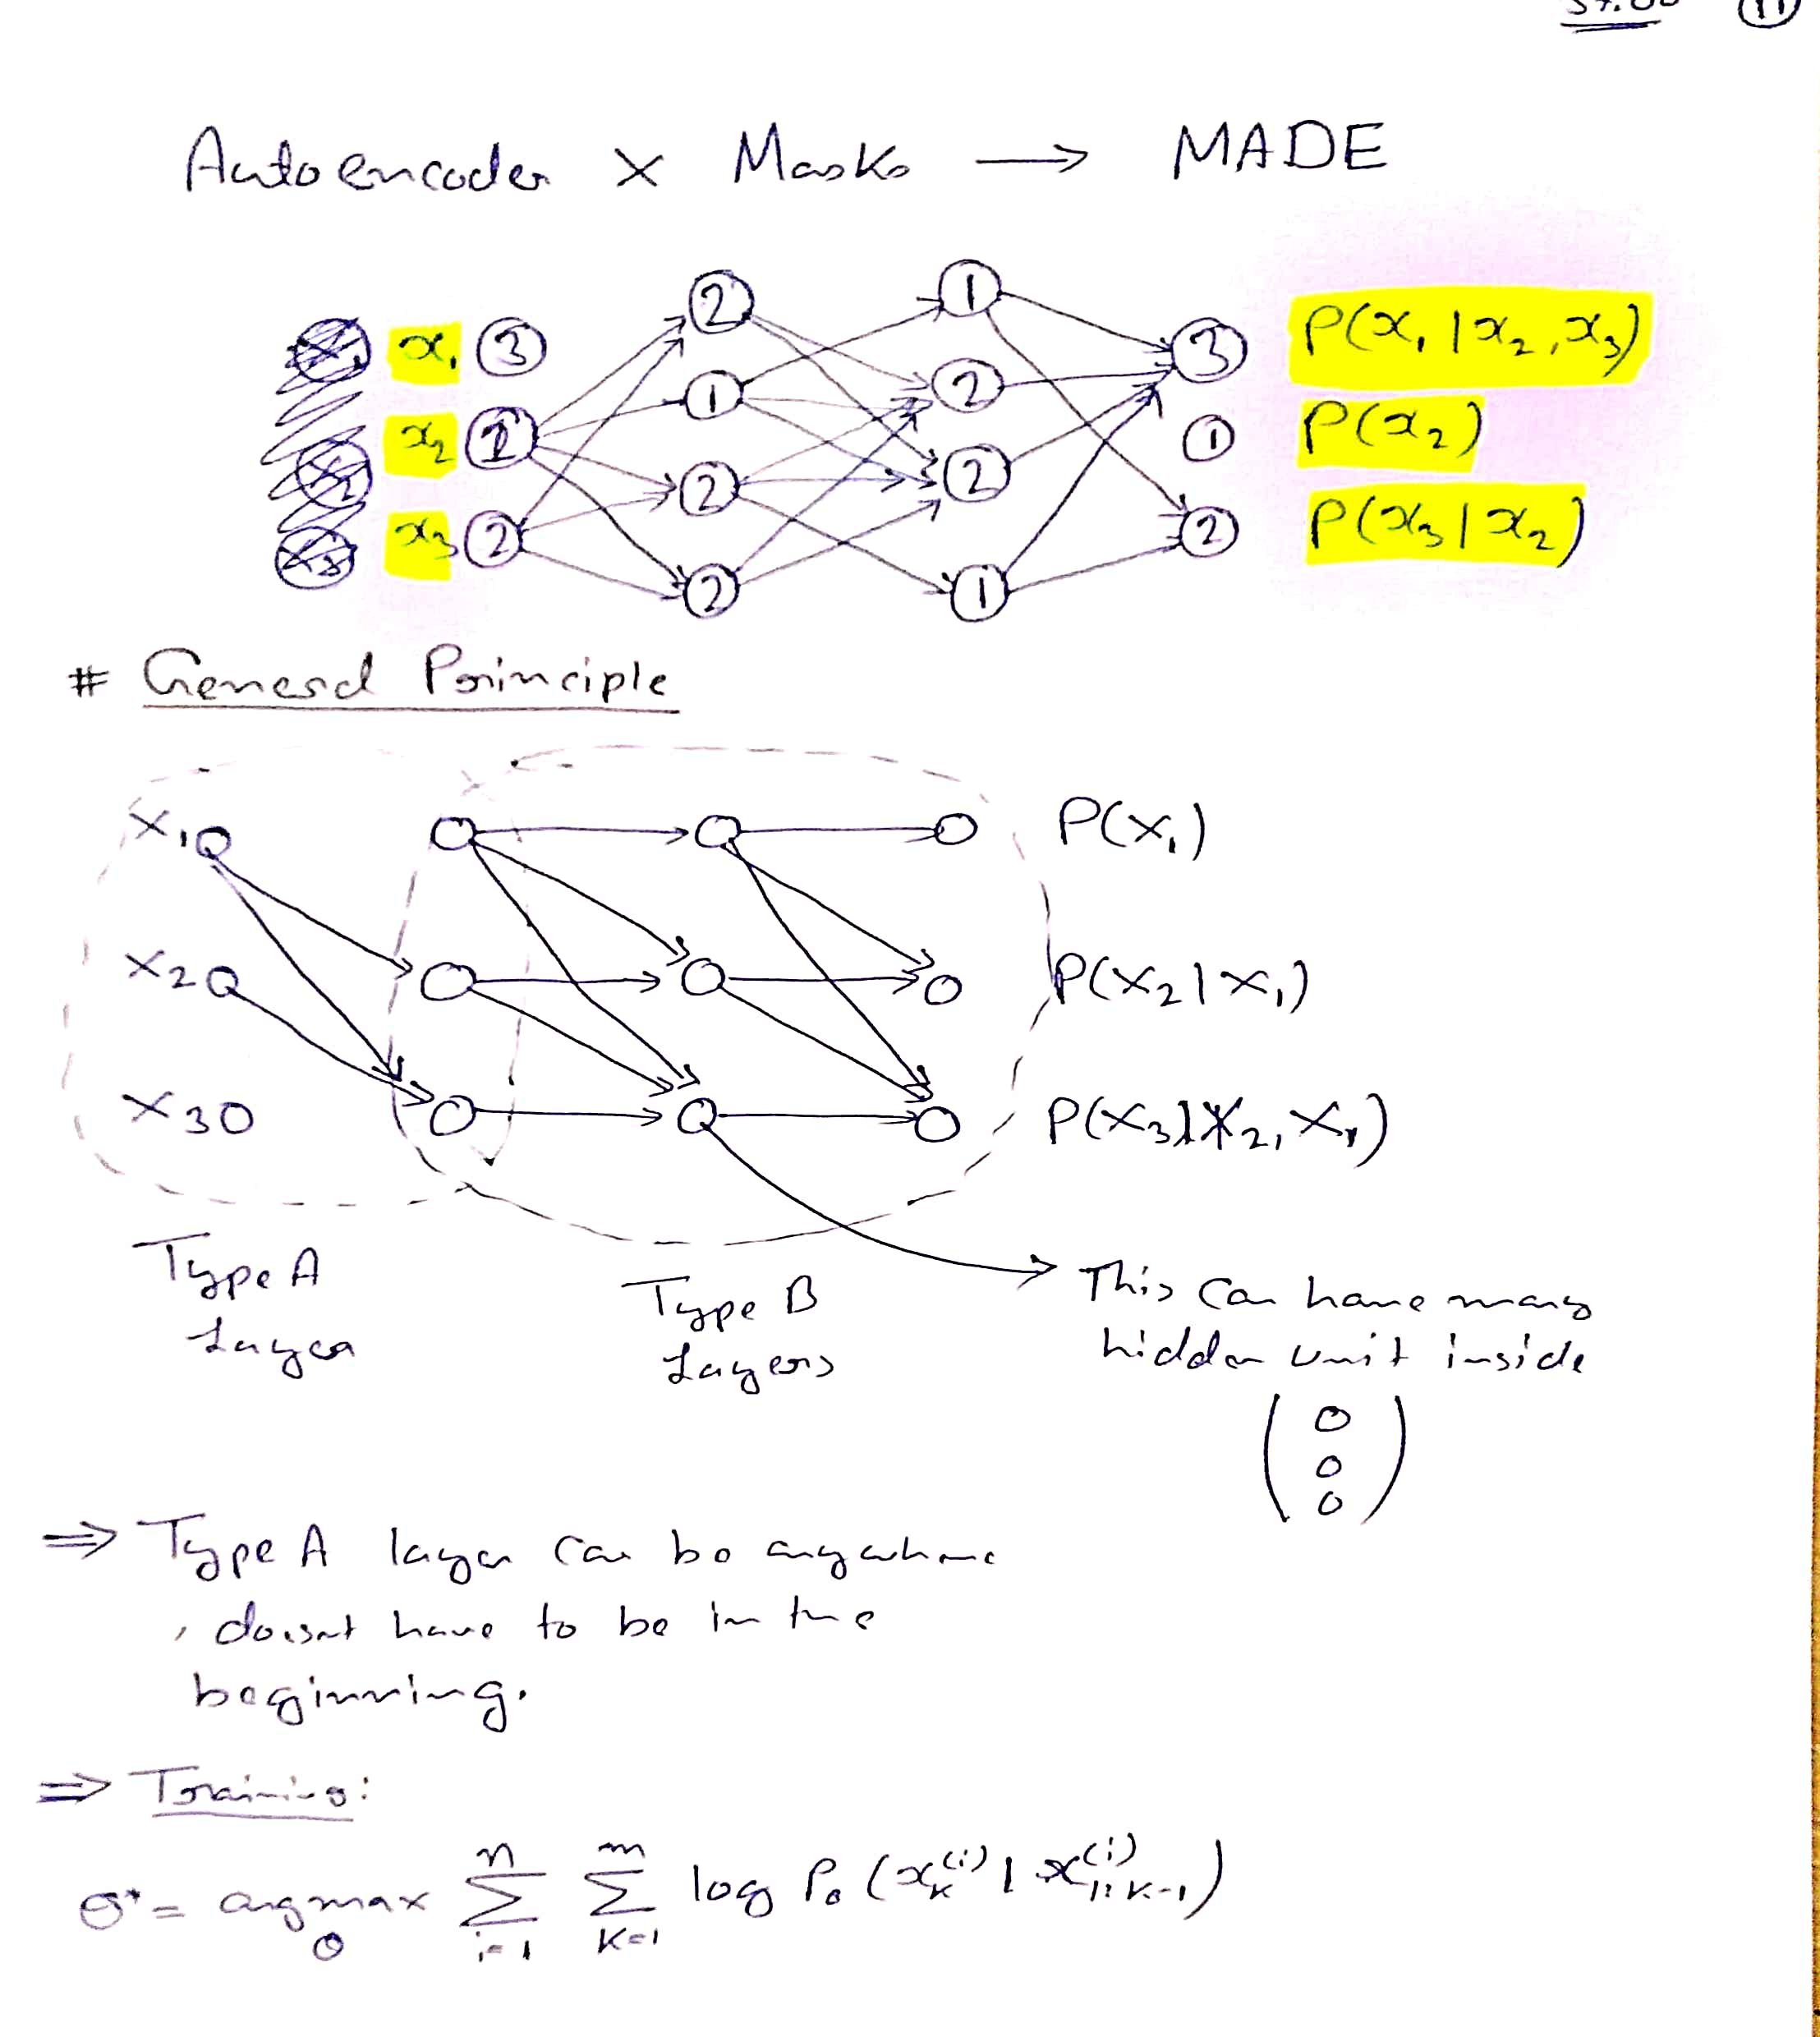 11
Autoencoder × Masks → MADE
x₁ 3 2 1 3 P(x₁|x₂,x₃)
x₂ 1 1 2 1 P(x₂)
x₃ 2 2 2 2 P(x₃|x₂)
2 1
# General Principle
x₁ P(x₁)
x₂ P(x₂|x₁)
x₃ P(x₃|x₂,x₁)
Type A
Layer
Type B
Layers
This can have many
hidden unit inside
⇒ Type A layer can be anywhere
, doesnt have to be in the
beginning.
⇒ Training:
θ* = argmax_θ Σ_{i=1}^{n} Σ_{k=1}^{m} log P_θ (x_k^{(i)} | x_{1:k-1}^{(i)})